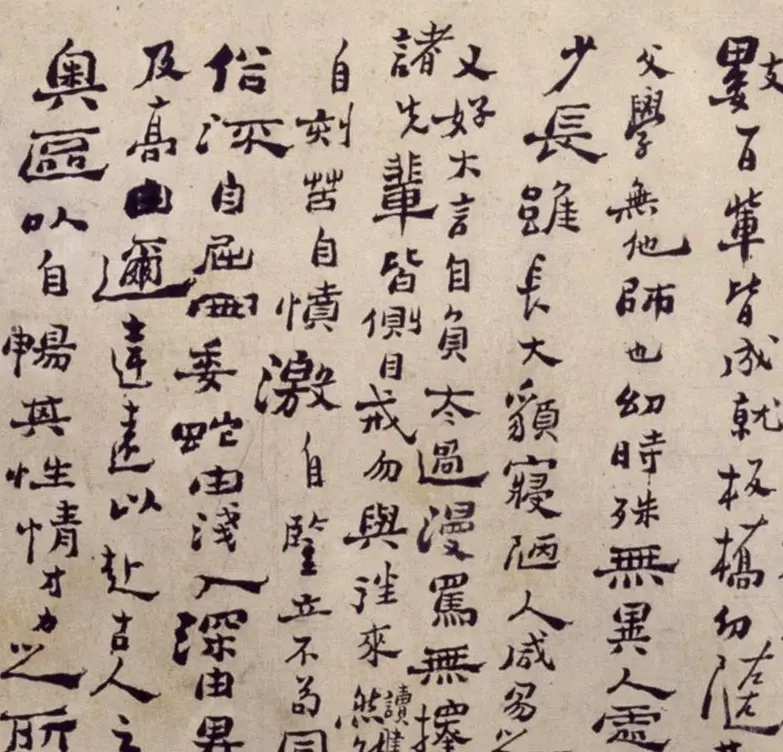 數百輩皆成就板橋幼隨
父學無他師也幼時殊無異人處
少長雖長大貌寢陋人咸易之
又好大言自負太過漫罵無擇
諸先輩皆側目戒勿與往來然讀
自刻苦自憤激自豎立不苟同
俗深自屈曲委蛇由淺入深由卑
及高由邇達遠以赴古人之
奧區以自暢其性情才力之所